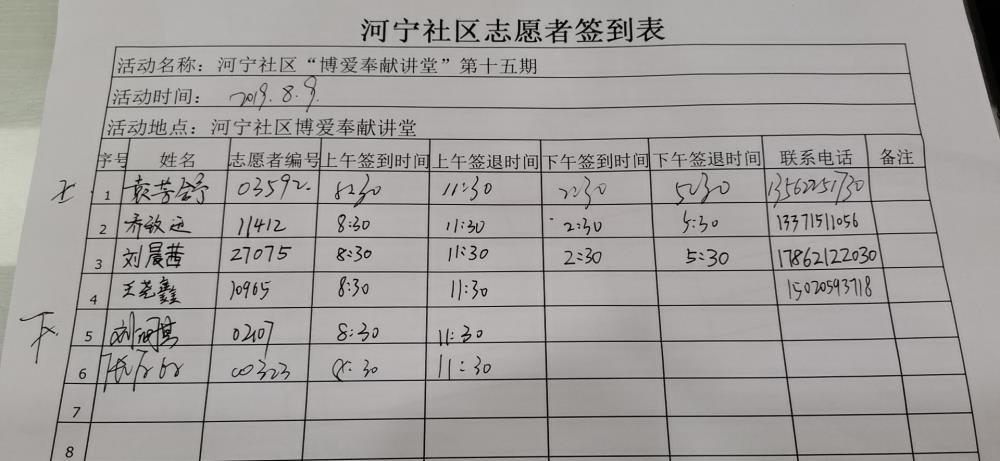 河宁社区志愿者签到表
活动名称：河宁社区“博爱奉献讲堂”第十五期
活动时间： 2019.8.9.
活动地点：河宁社区博爱奉献讲堂
序号 姓名 志愿者编号 上午签到时间 上午签退时间 下午签到时间 下午签退时间 联系电话 备注
1 袁芳舒 03592 8:30 11:30 2:30 5:30 13562251730
2 乔敏 11412 8:30 11:30 2:30 5:30 13371511056
3 刘晨茜 27075 8:30 11:30 2:30 5:30 17862122030
4 王尧鑫 10965 8:30 11:30 15020593718
5 刘 02107 8:30 11:30
6 00323 8:30 11:30
7
8